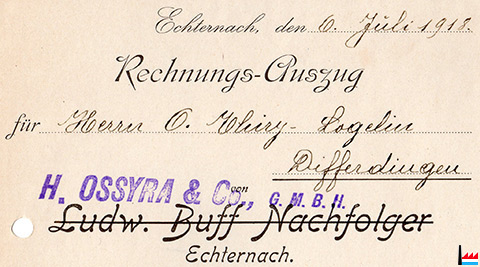 Echternach, den 6. Juli 1918.
Rechnungs-Auszug
für Herrn O. Thiry-Logelin
Differdingen
von
H. OSSYRA & Co., G.M.B.H.
Ludw. Buff Nachfolger
Echternach.